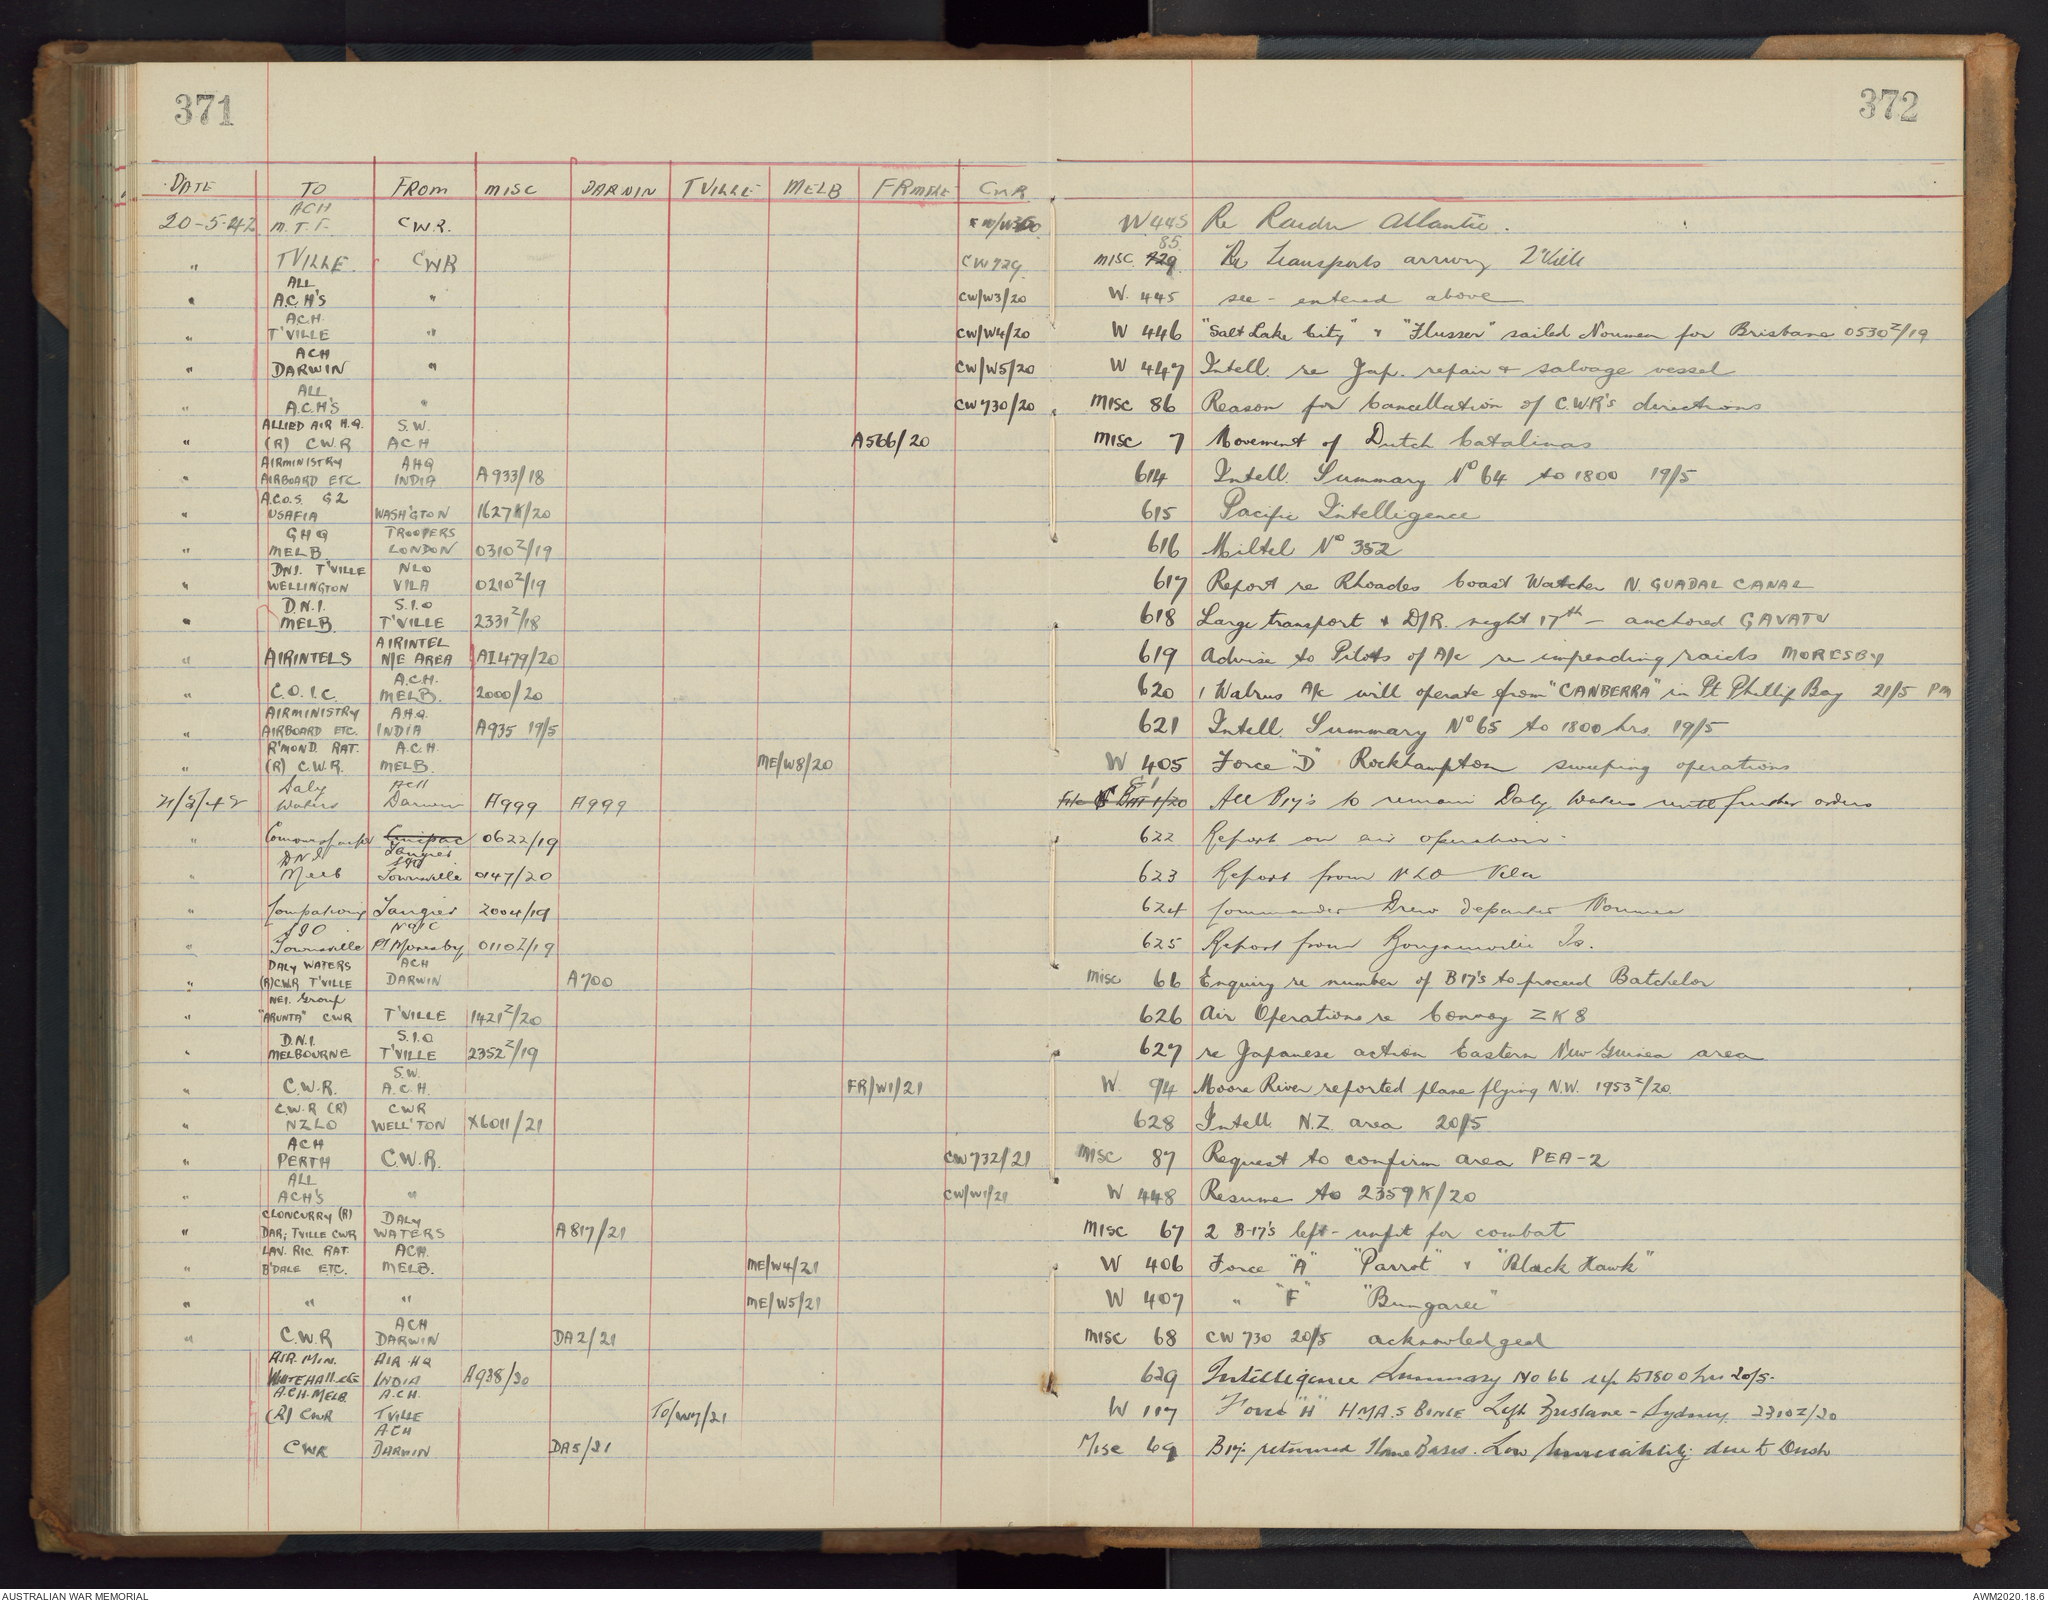 371
372
DATE TO FROM MISC DARWIN TVILLE MELB FRMPLE CWR
ACH
20-5-42 M.T.F. CWR. W445 Re Raider Atlantic.
85
" TVILLE CWR CW729 MISC 729 Re Transports arriving T'Ville
ALL
" A.C.H'S " CW/W3/20 W. 445 see - entered above
ACH.
" T'VILLE " CW/W4/20 W 446 "Salt Lake City" & "Flusser" sailed Noumea for Brisbane 0530Z/19
ACH
" DARWIN " CW/W5/20 W 447 Intell. re Jap. repair & salvage vessel
ALL
" A.C.H'S " CW730/20 MISC 86 Reason for Cancellation of C.W.R's directions
ALLIED AIR H.Q. S.W.
" (R) C.W.R ACH A566/20 MISC 7 Movement of Dutch Catalinas
AIRMINISTRY AHQ
" AIRBOARD ETC INDIA A933/18 614 Intell. Summary No 64 to 1800 19/5
A.C.O.S. G2
" USAFIA WASH'GTON 1627K/20 615 Pacific Intelligence
GHQ TROOPERS
" MELB LONDON 0310Z/19 616 Miltel No 352
DNI. T'VILLE NLO
" WELLINGTON VILA 0210Z/19 617 Report re Rhoades Coast Watcher N. GUADAL CANAL
D.N.I. S.I.O
" MELB. T'VILLE 2331Z/18 618 Large transport & D/R. night 17th - anchored GAVATU
AIRINTEL
" AIRINTELS N/E AREA AI479/20 619 Advise to Pilots of A/c re impending raids MORESBY
A.C.H.
" C.O.I.C. MELB. 2000/20 620 1 Walrus A/c will operate from "CANBERRA" in Pt Phillip Bay 21/5 PM
AIRMINISTRY A.H.Q.
" AIRBOARD ETC. INDIA A935 19/5 621 Intell. Summary No 65 to 1800 hrs. 19/5
R'MOND. RAT. A.C.H.
" (R) C.W.R. MELB. ME/W8/20 W 405 Force "D" Rockhampton sweeping operations
Daly ACH
21/5/42 Waters Darwin A999 A999 All B17's to remain Daly Waters until further orders
" 0622/19 622 Report on air operation.
Tangier
DNI SIO
" Melb Townsville 0147/20 623 Report from NLO Vila
" Tangier 2004/19 624 Commander Drew departed Noumea
SIO NOIC
" Townsville Pt Moresby 0110Z/19 625 Report from Bougainville Is.
DALY WATERS ACH
" (R) CWR T'VILLE DARWIN A700 Misc 66 Enquiry re number of B17's to proceed Batchelor
NEI. Group
" "ARUNTA" CWR T'VILLE 1421Z/20 626 Air Operations re Convoy ZK8
D.N.I. S.I.O
" MELBOURNE T'VILLE 2352Z/19 627 re Japanese action Eastern New Guinea area
S.W.
" C.W.R. A.C.H. FR/W1/21 W. 94 Moore River reported plane flying N.W. 1953Z/20.
C.W.R (R) CWR
" NZLO WELL'TON X6011/21 628 Intell N.Z. area 20/5
ACH
" PERTH C.W.R. CW732/21 Misc 87 Request to confirm area PEA-2
ALL
" ACH'S " CW/W1/21 W 448 Resume to 2359K/20
CLONCURRY (R) DALY
" DAR; TVILLE CWR WATERS A817/21 MISC 67 2 B-17's left - unfit for combat
LAV. RIC RAT. ACH.
" B'DALE ETC. MELB. ME/W4/21 W 406 Force "A" "Parrot" & "Black Hawk"
" " " ME/W5/21 W 407 " "F" "Bungaree"
ACH
" C.W.R DARWIN DA2/21 MISC 68 CW730 20/5 acknowledged
AIR. MIN. AIR HQ
WHITEHALL etc INDIA A938/20 629 Intelligence Summary No 66 up to 1800 hrs 20/5.
A.C.H. MELB A.C.H.
(R) CWR TVILLE TO/W7/21 W 117 Force "H" H.M.A.S BINGE Left Brisbane - Sydney 2310Z/20
ACH
CWR DARWIN DA5/21 Misc 69 B17s returned Home Bases. Low due to Dush
AUSTRALIAN WAR MEMORIAL
AWM2020.18.6